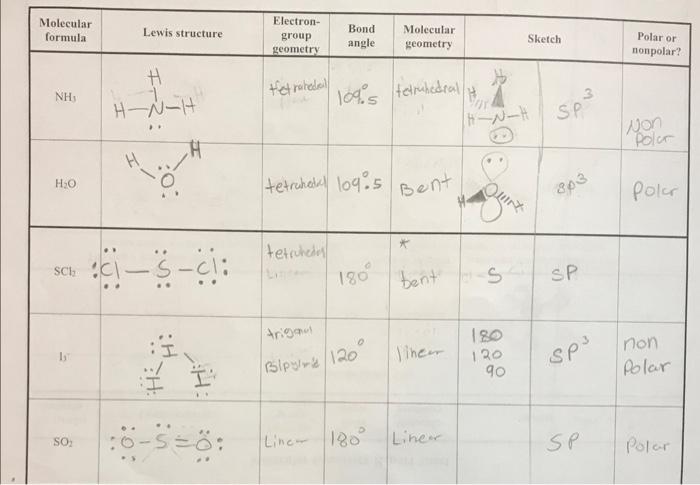 Molecular formula
Lewis structure
Electron-group geometry
Bond angle
Molecular geometry
Sketch
Polar or nonpolar?
NH₃
H
H—N—H
tetrahedral
109.5°
tetrahedral
H
H
H—N—H
SP³
Non
Polar
H₂O
H
H
O
tetrahedral
109.5°
Bent
H
O
H
SP³
Polar
SCl₂
:Cl—S—Cl:
tetrahedral
180°
*
bent
S
SP
I₃⁻
I
I
I
trigonal
120°
linear
180
120
90
SP³
non
Polar
SO₂
:O—S=O:
Linear
180°
Linear
SP
Polar